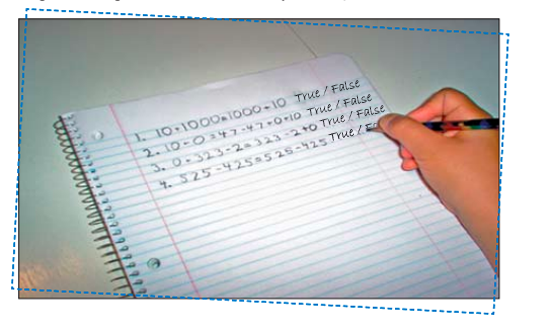 1. 10+1000=1000+10 True / False
2. 10-0=47-47+0+10 True / False
3. 0-323-2=323-2+0 True / False
4. 525-425=525-425 True /